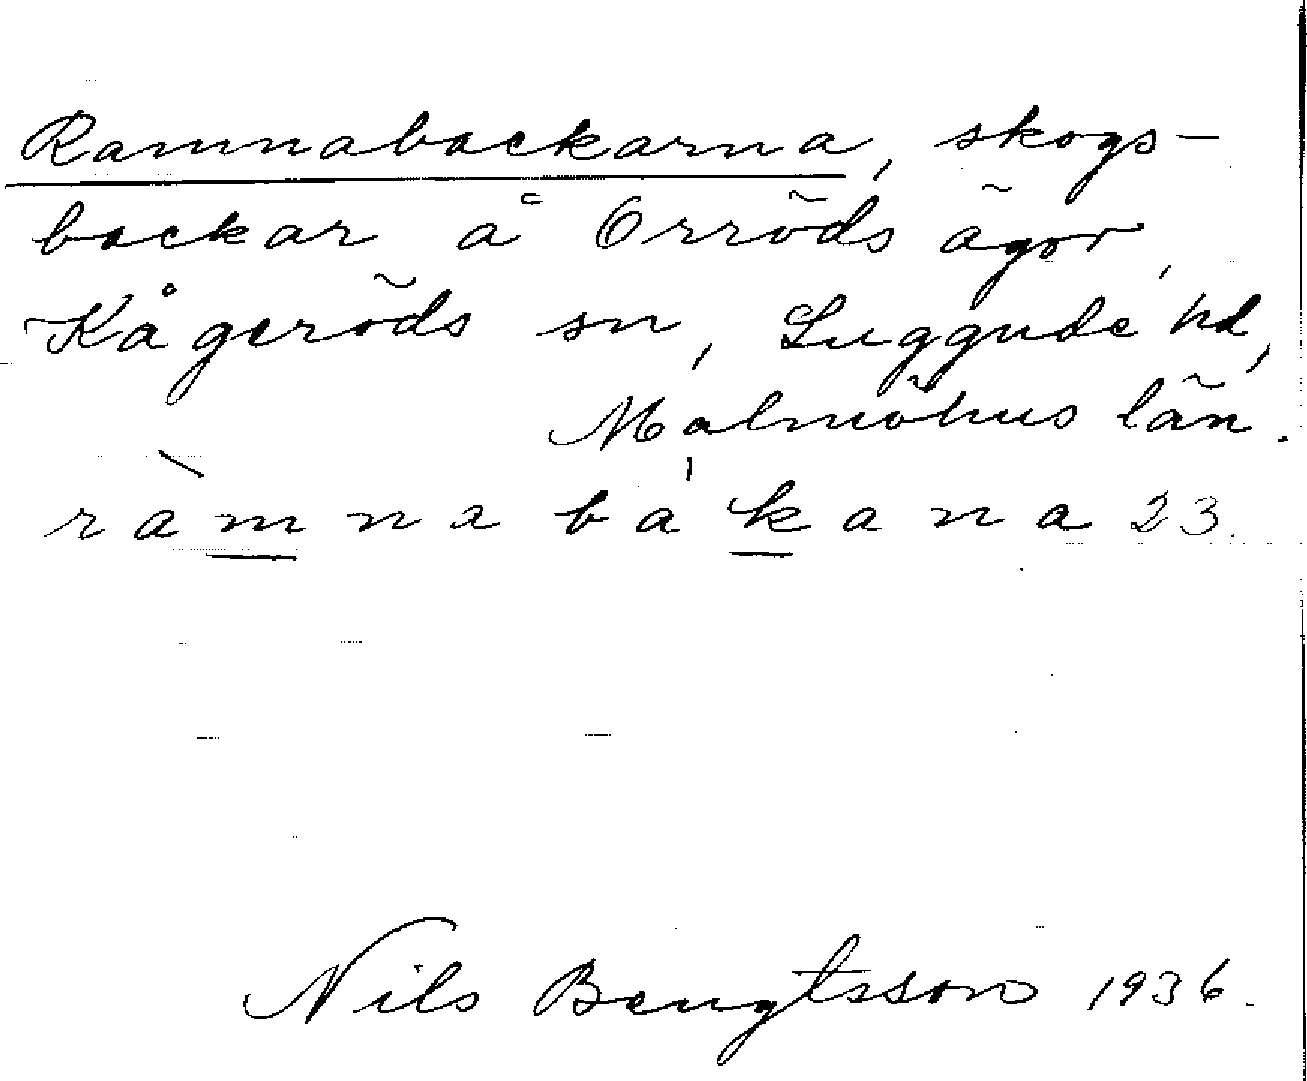 Ramnabackarna, skogs-
backar å Orröds ägor,
Kågeröds sn, Luggude hd,
Malmöhus län.
ràmna bákana 23.
Nils Bengtsson 1936.